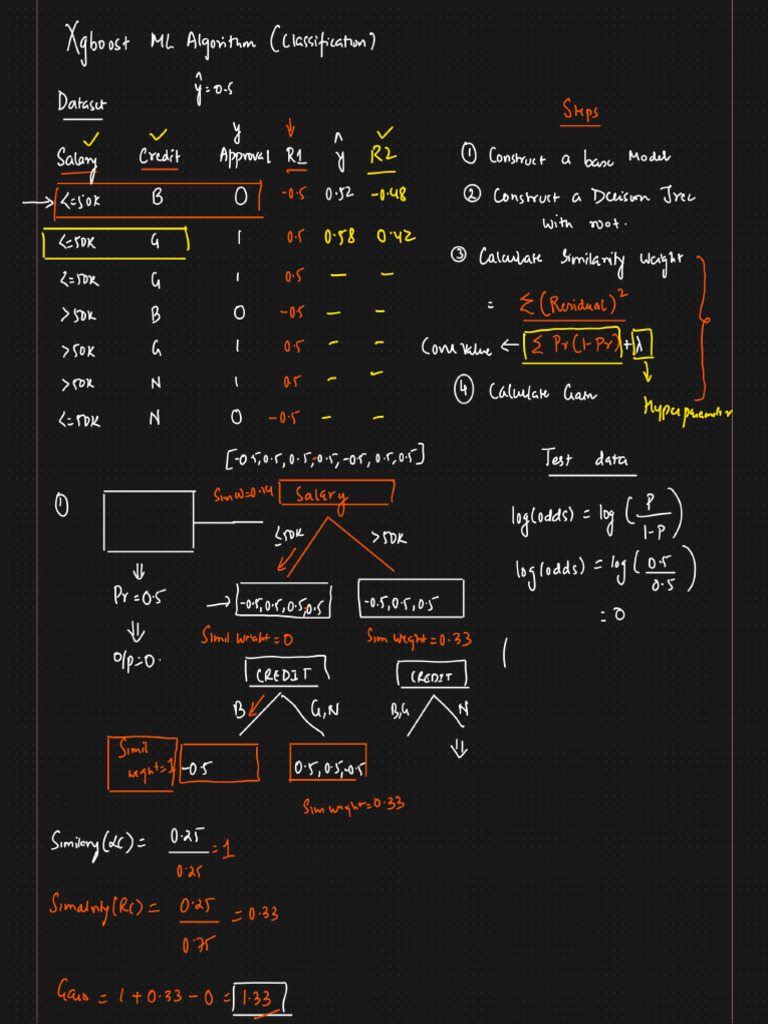 Xgboost ML Algorithm (Classification)
ŷ=0.5
Dataset
y
Salary Credit Approval R1 ŷ R2
<=50K B 0 -0.5 0.52 -0.48
<=50K G 1 0.5 0.58 0.42
<=50K G 1 0.5 - -
>50K B 0 -0.5 - -
>50K G 1 0.5 - -
>50K N 1 0.5 - -
<=50K N 0 -0.5 - -
Steps
① Construct a base Model
② Construct a Decision Tree
with root.
③ Calculate Similarity Weight
= Σ(Residual)²
Cover Value ← Σ Pr(1-Pr) + λ
④ Calculate Gain
Hyperparameter
[-0.5,0.5,0.5,-0.5,-0.5,0.5,0.5]
Sim W=0.14 Salary
①
≤50K >50K
Pr=0.5
-0.5,0.5,0.5,0.5 -0.5,0.5,0.5
Simil Weight=0 Sim weight=0.33
O/P=0.
CREDIT CREDIT
B G,N B,G N
Simil
weight=1 -0.5 0.5,0.5,-0.5
Sim weight=0.33
Similary(LC)= 0.25
0.25 =1
Simalrity(RC)= 0.25
0.75 =0.33
Gain = 1+0.33-0 = 1.33
Test data
log(odds) = log (P
1-P)
log(odds) = log (0.5
0.5)
= 0